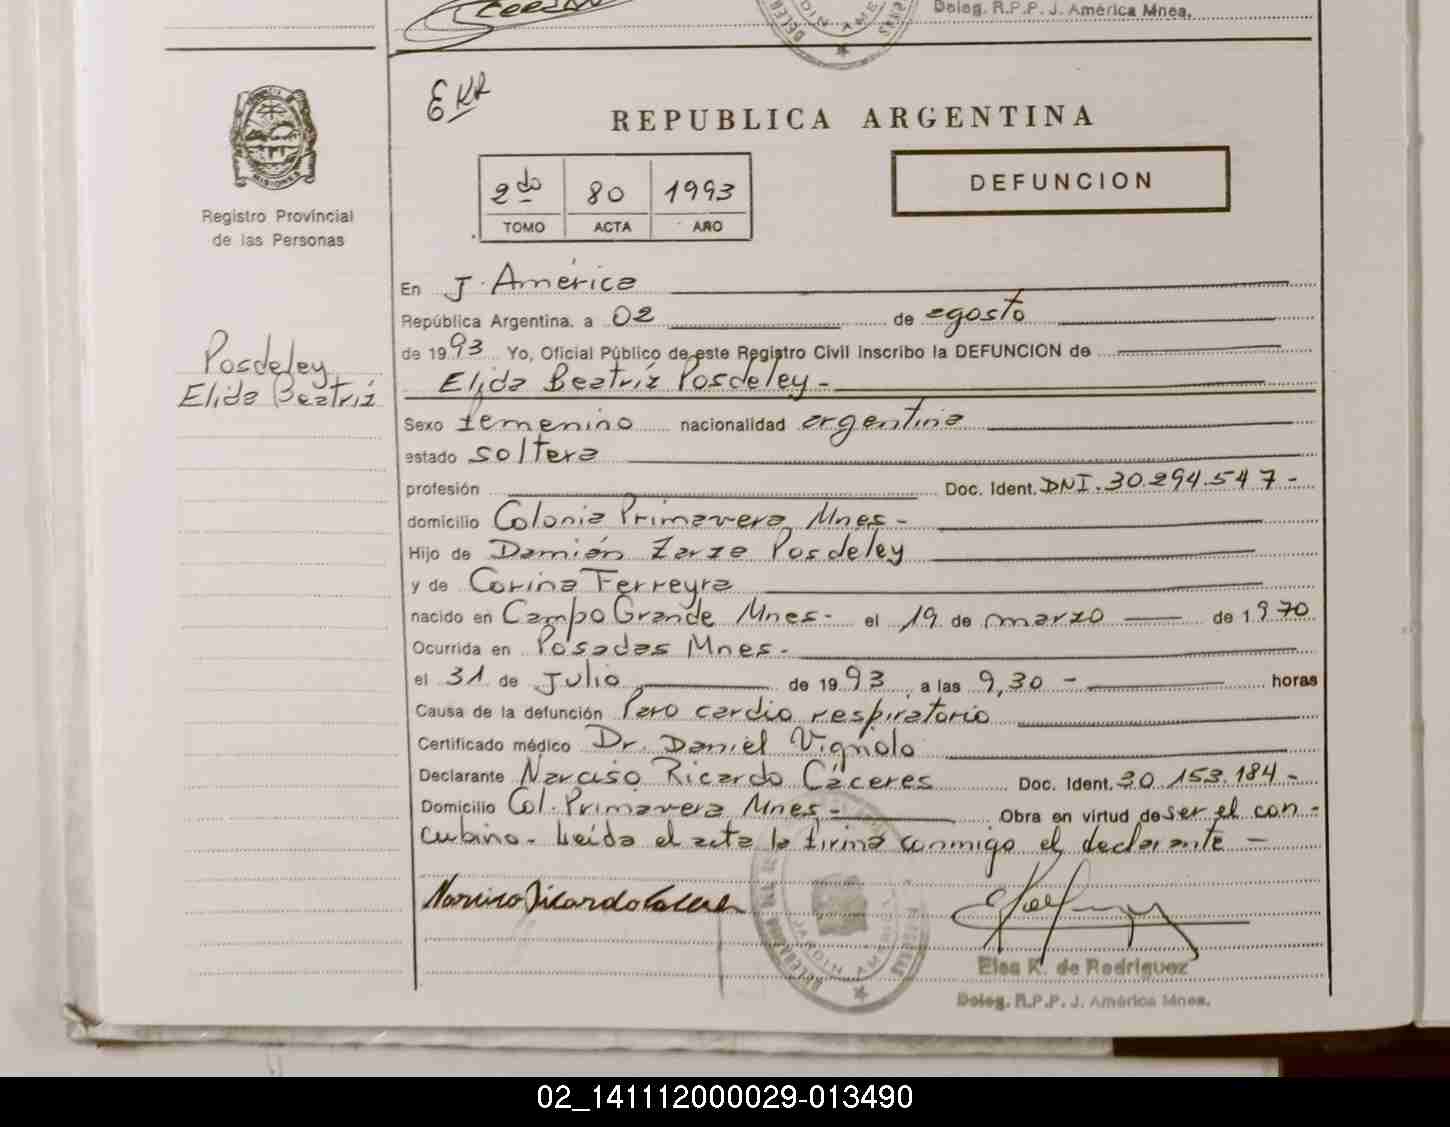 Deleg. R.P.P. J. América Mnes.
EKR
REPUBLICA ARGENTINA
MISIONES
Registro Provincial
de las Personas
2do 80 1993
TOMO ACTA AÑO
DEFUNCION
En J. América
República Argentina. a 02 de agosto
de 1993 Yo, Oficial Público de este Registro Civil inscribo la DEFUNCION de
Posdeley
Elida Beatriz
Elida Beatriz Posdeley -
Sexo femenino nacionalidad argentina
estado soltera
profesión Doc. Ident. DNI. 30.294.547 -
domicilio Colonia Primavera Mnes -
Hijo de Damián Zarze Posdeley
y de Corina Ferreyra
nacido en Campo Grande Mnes - el 19 de marzo de 1970
Ocurrida en Posadas Mnes -
el 31 de Julio de 1993 a las 9,30 - horas
Causa de la defunción Paro cardio respiratorio
Certificado médico Dr. Daniel Vignolo
Declarante Narciso Ricardo Cáceres Doc. Ident. 20.153.184 -
Domicilio Col. Primavera Mnes - Obra en virtud de ser el con -
cubino - Leída el acta la firma conmigo el declarante -
Narciso Ricardo Caceres
JARDIN AMERICA
Elsa K. de Rodriguez
Deleg. R.P.P. J. América Mnes.
02_141112000029-013490